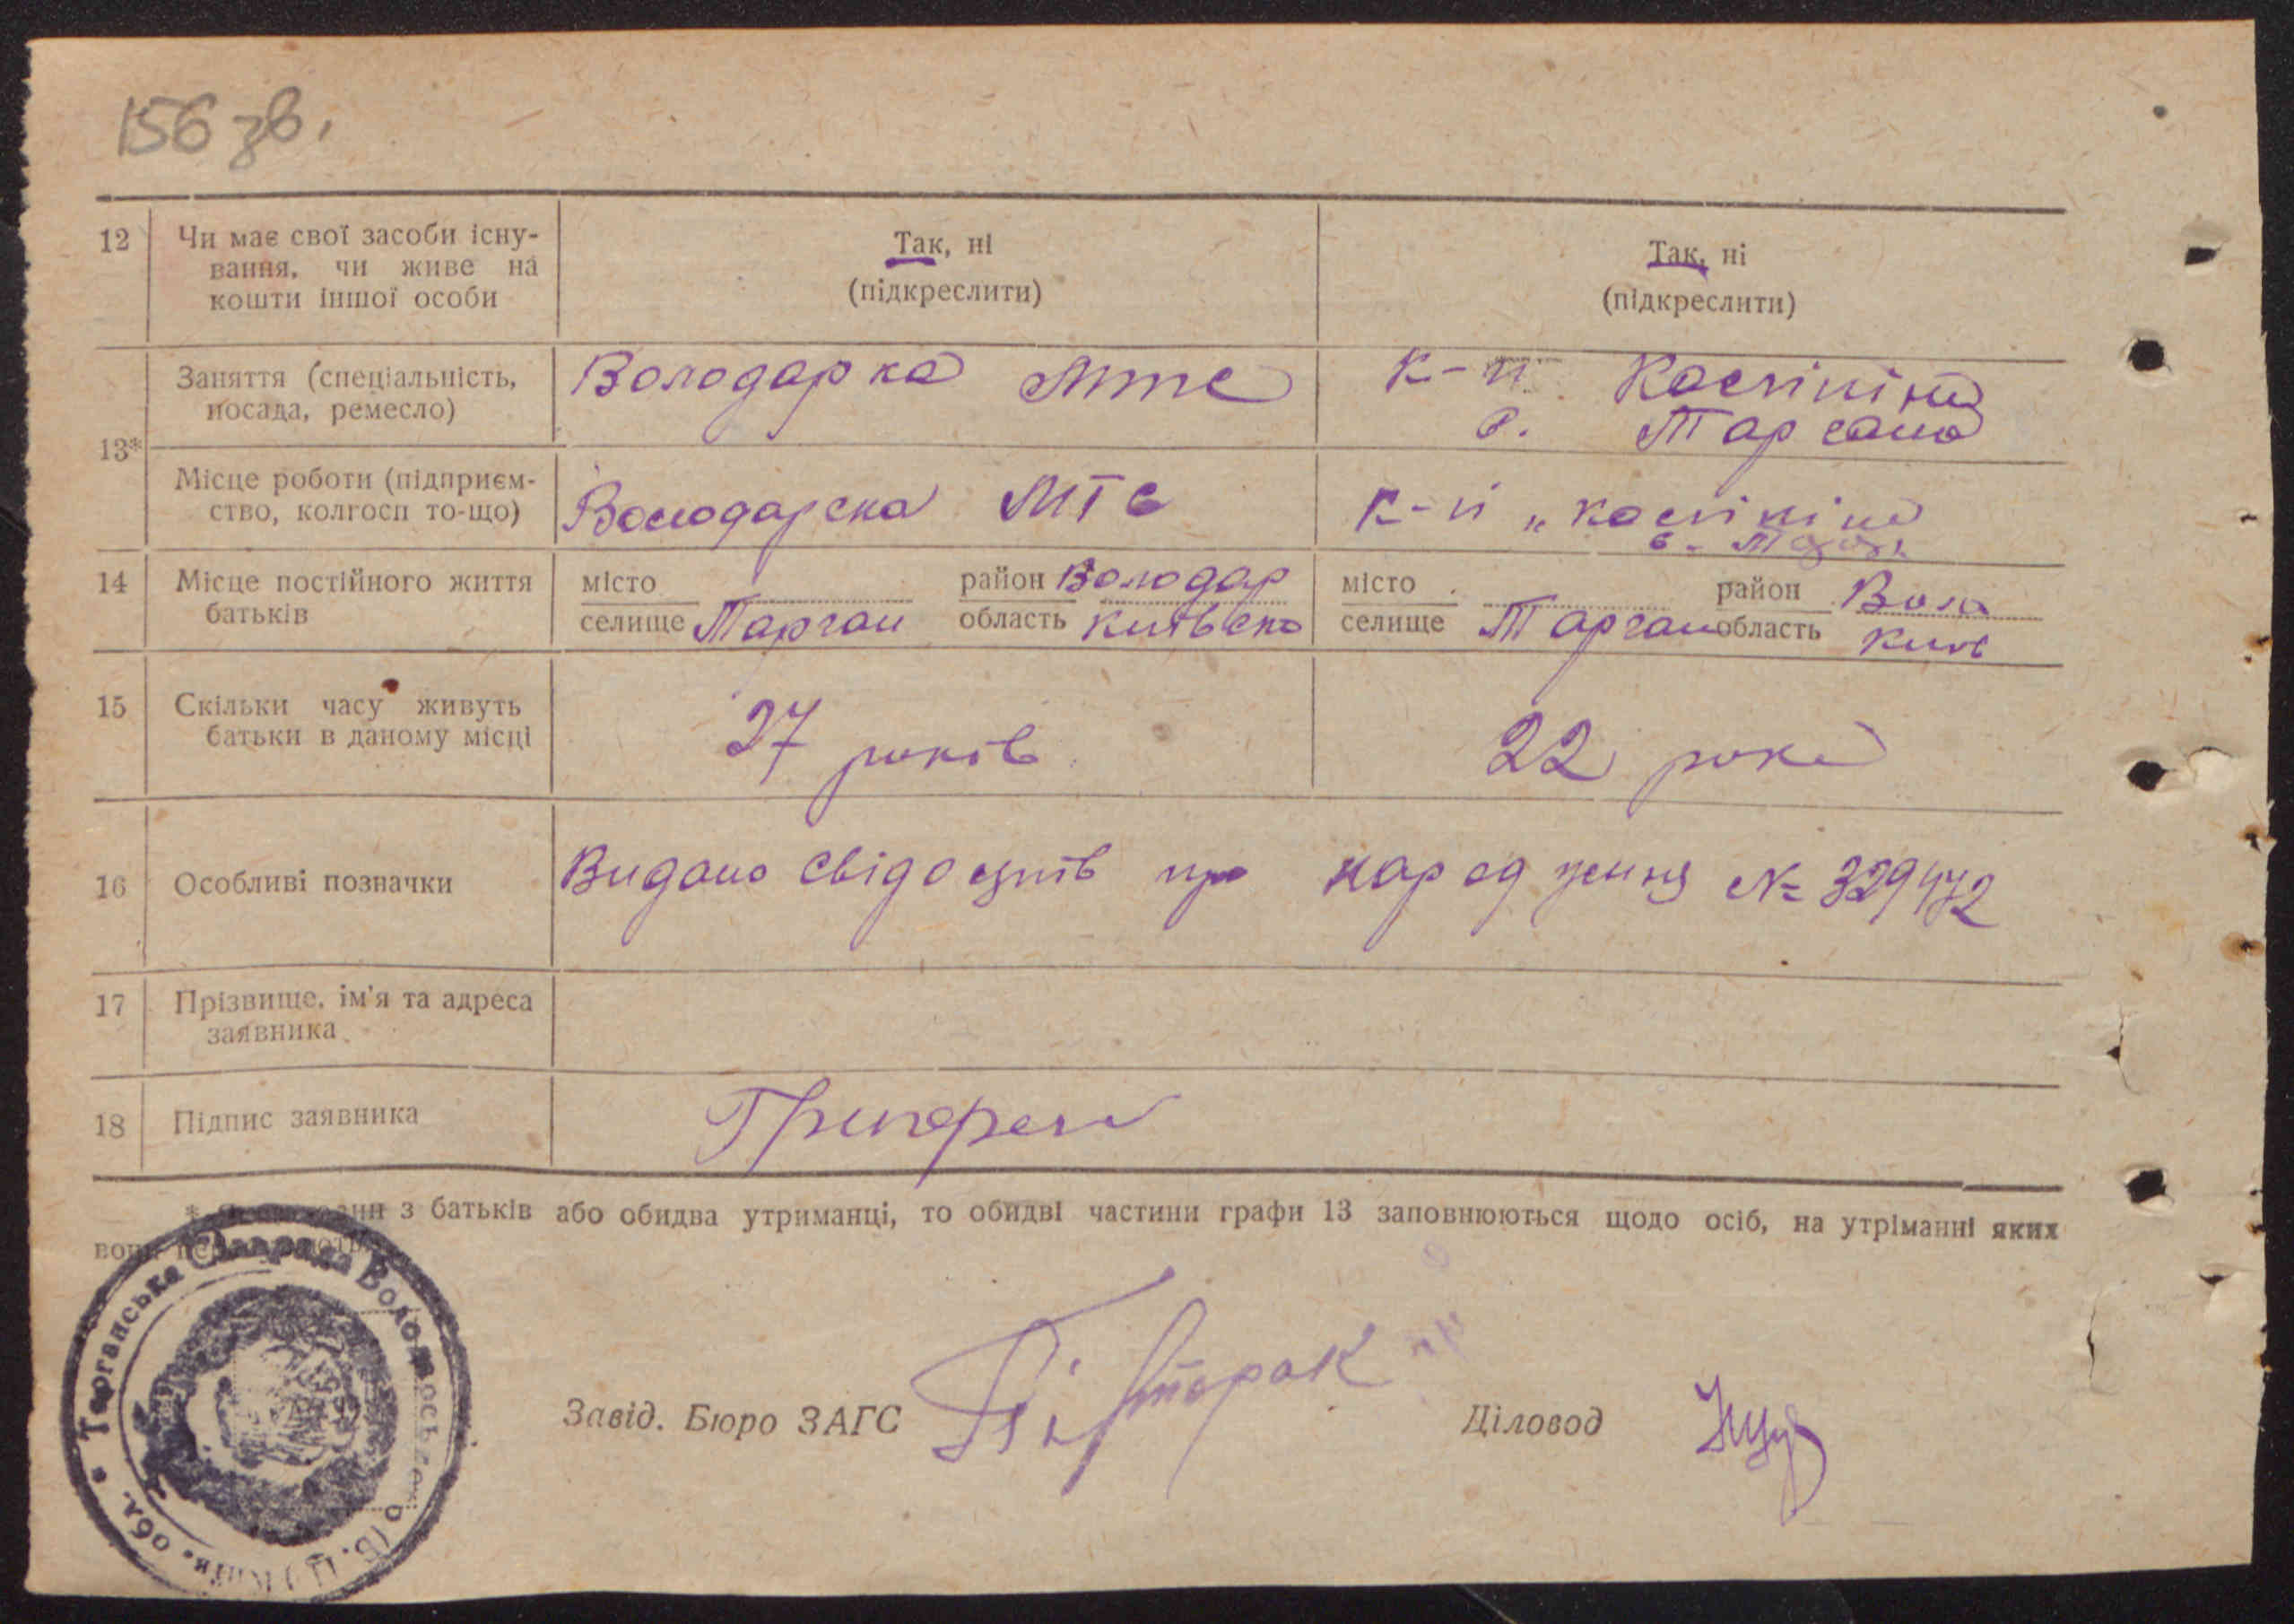 156 зв.
12 Чи має свої засоби існу-
вання, чи живе на
кошти іншої особи
Так, ні
(підкреслити)
Так, ні
(підкреслити)
13*
Заняття (спеціальність,
посада, ремесло)
Володарка мтс
к-п Косипіна
с. Таргана
Місце роботи (підприєм-
ство, колгосп то-що)
Володарска МТС
14 Місце постійного життя
батьків
місто район Володар
селище Тарган область київсна
місто район Вола
селище Тарган область Київ
15 Скільки часу живуть
батьки в даному місці
27 років
22 роки
16 Особливі позначки
Видано свідоцтв про народження № 329472
17 Прізвище, ім'я та адреса
заявника
18 Підпис заявника
* з батьків або обидва утриманці, то обидві частини графи 13 заповнюються щодо осіб, на утріманні яких
вони
Тарганська Сільрада Володарського (Б. Ц.) Київ. обл.
Завід. Бюро ЗАГС
Діловод